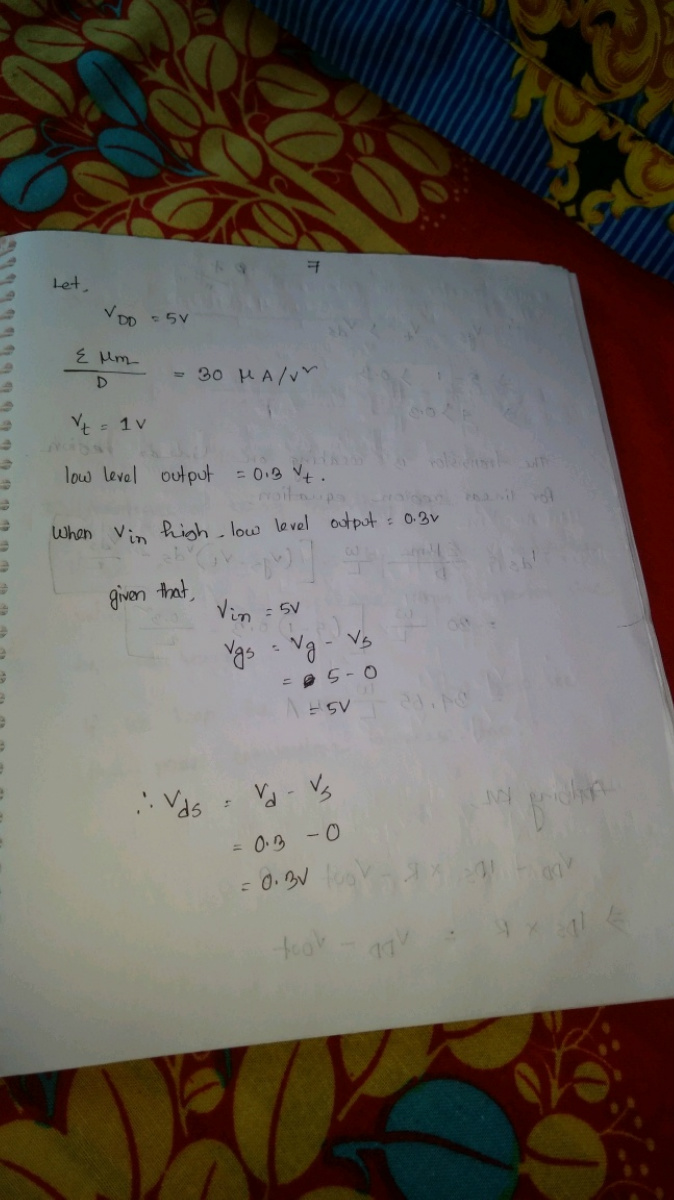 7
Let,
V_DD = 5V
Σ μm / D = 30 μA/V^2
V_t = 1V
low level output = 0.3 V_t.
when Vin high, low level output = 0.3V
given that,
Vin = 5V
Vgs = Vg - Vs
= 5 - 0
= 5V
∴ Vds = Vd - Vs
= 0.3 - 0
= 0.3V